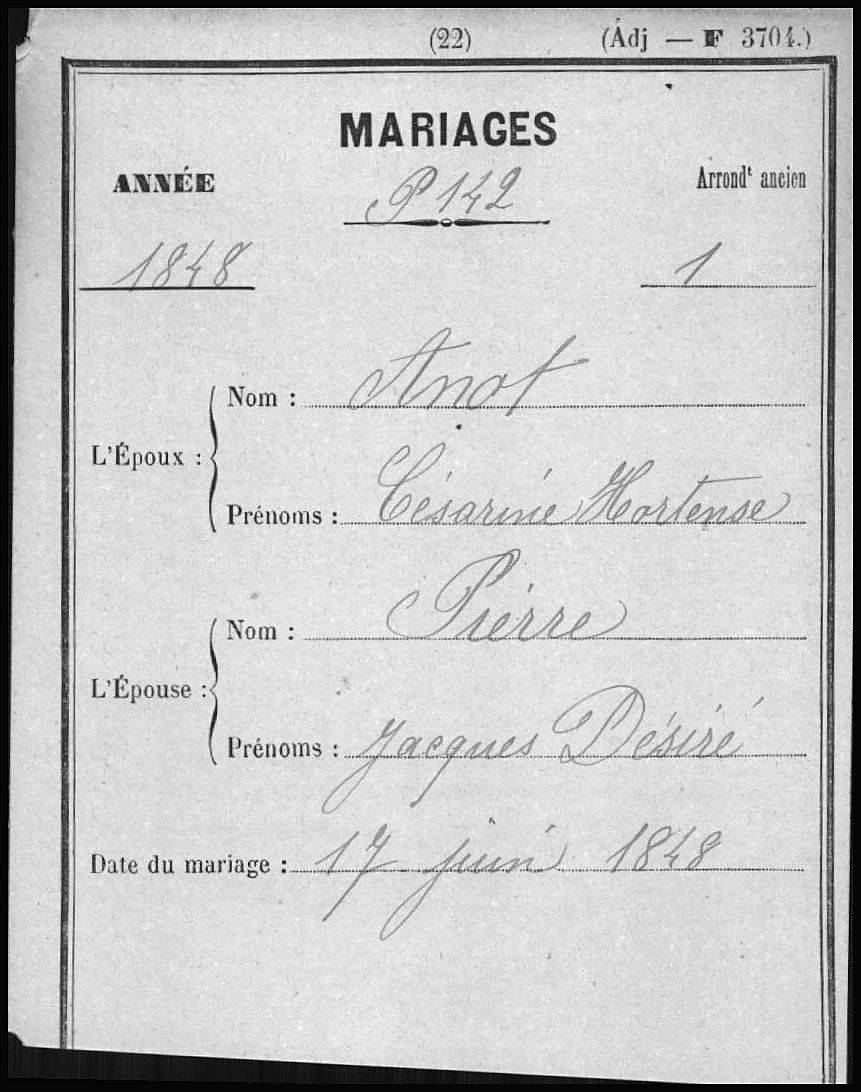 (22) (Adj — F 3704.)
MARIAGES
ANNÉE
P 142
Arrondt ancien
1848
1
L'Époux :
Nom : Anot
Prénoms : Césarine Hortense
L'Épouse :
Nom : Pierre
Prénoms : Jacques Désiré
Date du mariage : 17 juin 1848